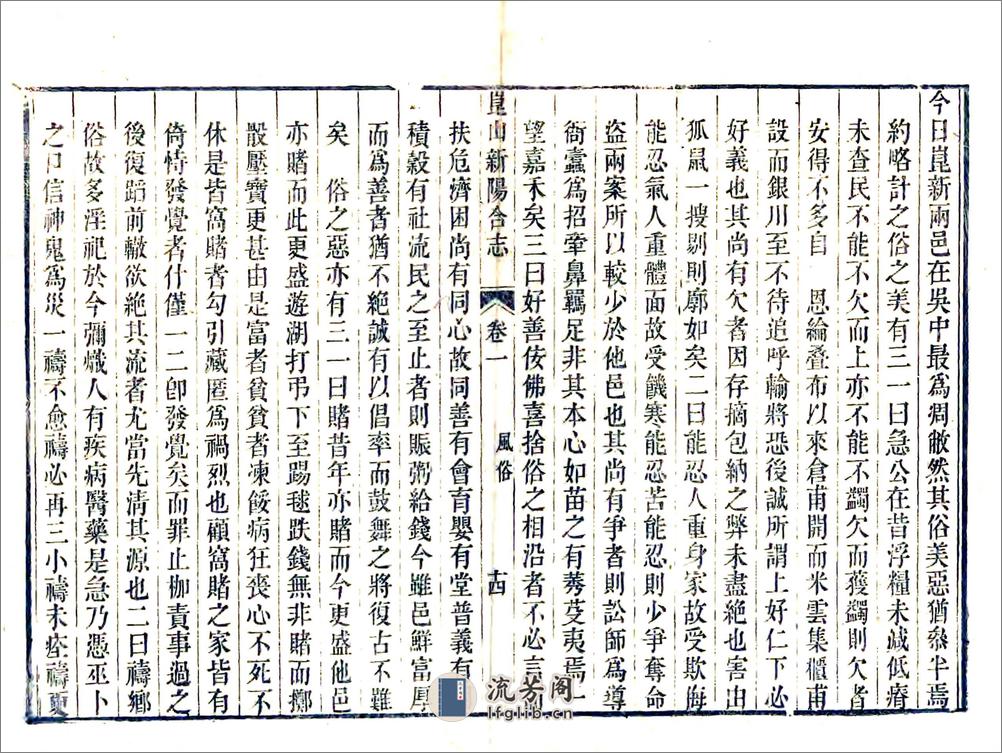 今日崑新兩邑在吳中最為凋敝然其俗美惡猶叅半焉
約略計之俗之美有三一曰急公在昔浮糧未减低瘠
未查民不能不欠而上亦不能不蠲欠而獲蠲則欠者
安得不多自　恩綸疊布以來倉甫開而米雲集櫃甫
設而銀川至不待追呼輸將恐後誠所謂上好仁下必
好義也其尚有欠者因存摘包納之弊未盡絕也害由
狐鼠一搜剔則廓如矣二曰能忍人重身家故受欺侮
能忍氣人重體面故受饑寒能忍苦能忍則少爭奪命
盜兩案所以較少於他邑也其尚有爭者則訟師為導
衙蠹為招牽鼻羈足非其本心如苗之有莠芟夷焉一
望嘉禾矣三曰好善佞佛喜捨俗之相沿者不必言
崑山新陽合志
卷一
風俗
十四
扶危濟困尚有同心故同善有會育嬰有堂普義有
積穀有社流民之至止者則賑粥給錢今雖邑鮮富厚
而為善者猶不絕誠有以倡率而鼓舞之將復古不難
矣　俗之惡亦有三一曰賭昔年亦賭而今更盛他邑
亦賭而此更盛遊湖打弔下至踢毬跌錢無非賭而擲
骰壓寶更甚由是富者貧貧者凍餒病狂喪心不死不
休是皆窩賭者勾引藏匿為禍烈也顧窩賭之家皆有
倚恃發覺者什僅一二卽發覺矣而罪止枷責事過之
後復蹈前轍欲絕其流者尤當先淸其源也二曰禱鄉
俗故多淫祀於今彌熾人有疾病醫藥是急乃憑巫卜
之口信神鬼為災一禱不愈禱必再三小禱未痊禱更
流芳阁
lfglib.cn